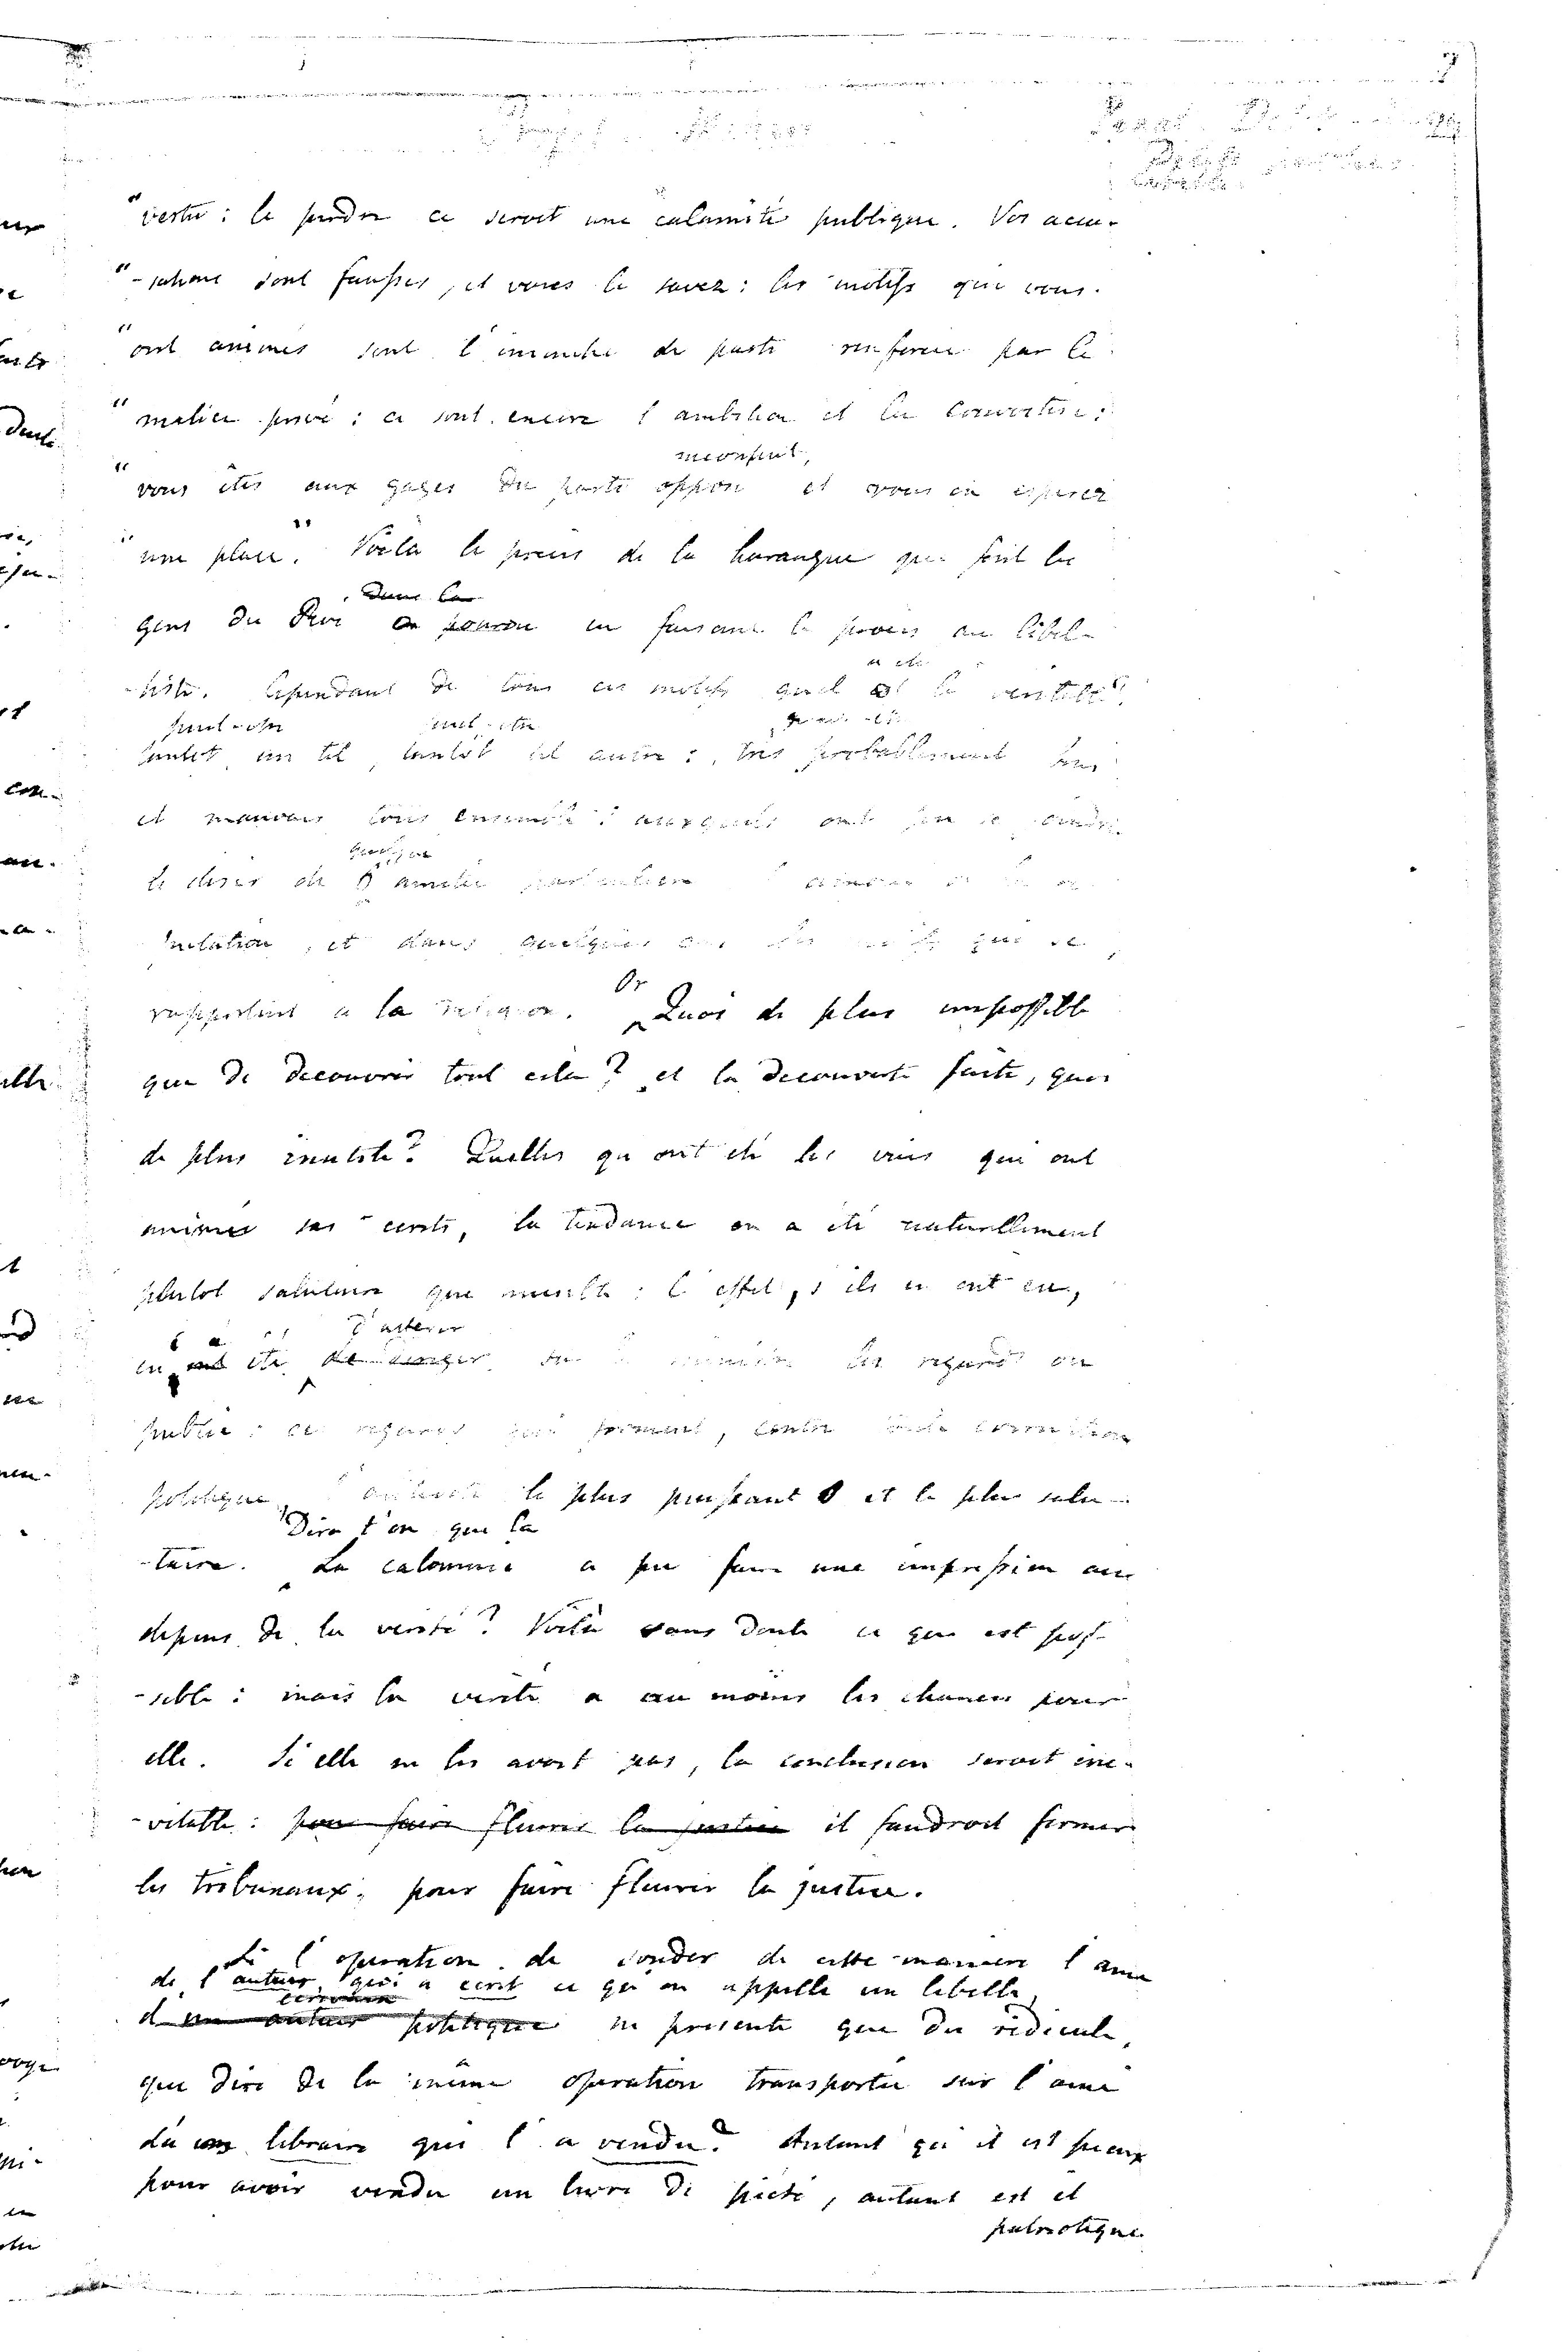 "vertu : le perdre ce seroit une calamité publique. Vos accu-
"-sations sont fausses, et vous le savez : les motifs qui vous
"ont animés sont l'inimitié de parti renforcée par la
"malice privée : ce sont encore l'ambition et la convoitise :
monsieur,
"vous etes aux gages du parti opposé et vous en esperez
"une place." Voila le precis de la harangue que font les
dans la
gens du Roi en faisant le proces au libel-
a été
-liste. Cependant de tous ces motifs quel est le veritable?
peut-etre peut-etre
tantot un tel, tantot tel autre : très probablement bons
et mauvais tous ensemble : auxquels ont pu se joindre
quelque
le desir de l'amitié particuliere
-putation, et dans quelques cas des motifs qui se
Or
rapportent a la religion. Quoi de plus impossible
que de decouvrir tout cela? et la decouverte faite, quoi
de plus inutile? Quelles qu'ont été les vues qui ont
animés ses ecrits, la tendance en a été naturellement
plutot salutaire que nuisible : l'effet, s'ils en ont eu,
a d'attirer
en été les regards du
public : ces regards qui forment, contre toute corruption
politique, l'antidote le plus puissant et le plus salu-
Dira t'on que la
-taire. La calomnie a pu faire une impression au
depens de la verité? Voila sans doute ce qui est pos-
-sible : mais la verité a au moins les chances pour
elle. Si elle ne les avoit pas, la conclusion seroit ine-
-vitable : pour faire fleurir la justice il faudroit fermer
les tribunaux, pour faire fleurir la justice.
Si l'operation de sonder de cette maniere l'ame
de l'auteur qui a ecrit ce qu'on appelle un libelle,
ecrivain
d'un auteur politique ne presente que du ridicule,
que dire de la meme operation transportée sur l'ame
du libraire qui l'a vendu? Autant qu'il est pieux
pour avoir vendu un livre de pieté, autant est il
patriotique